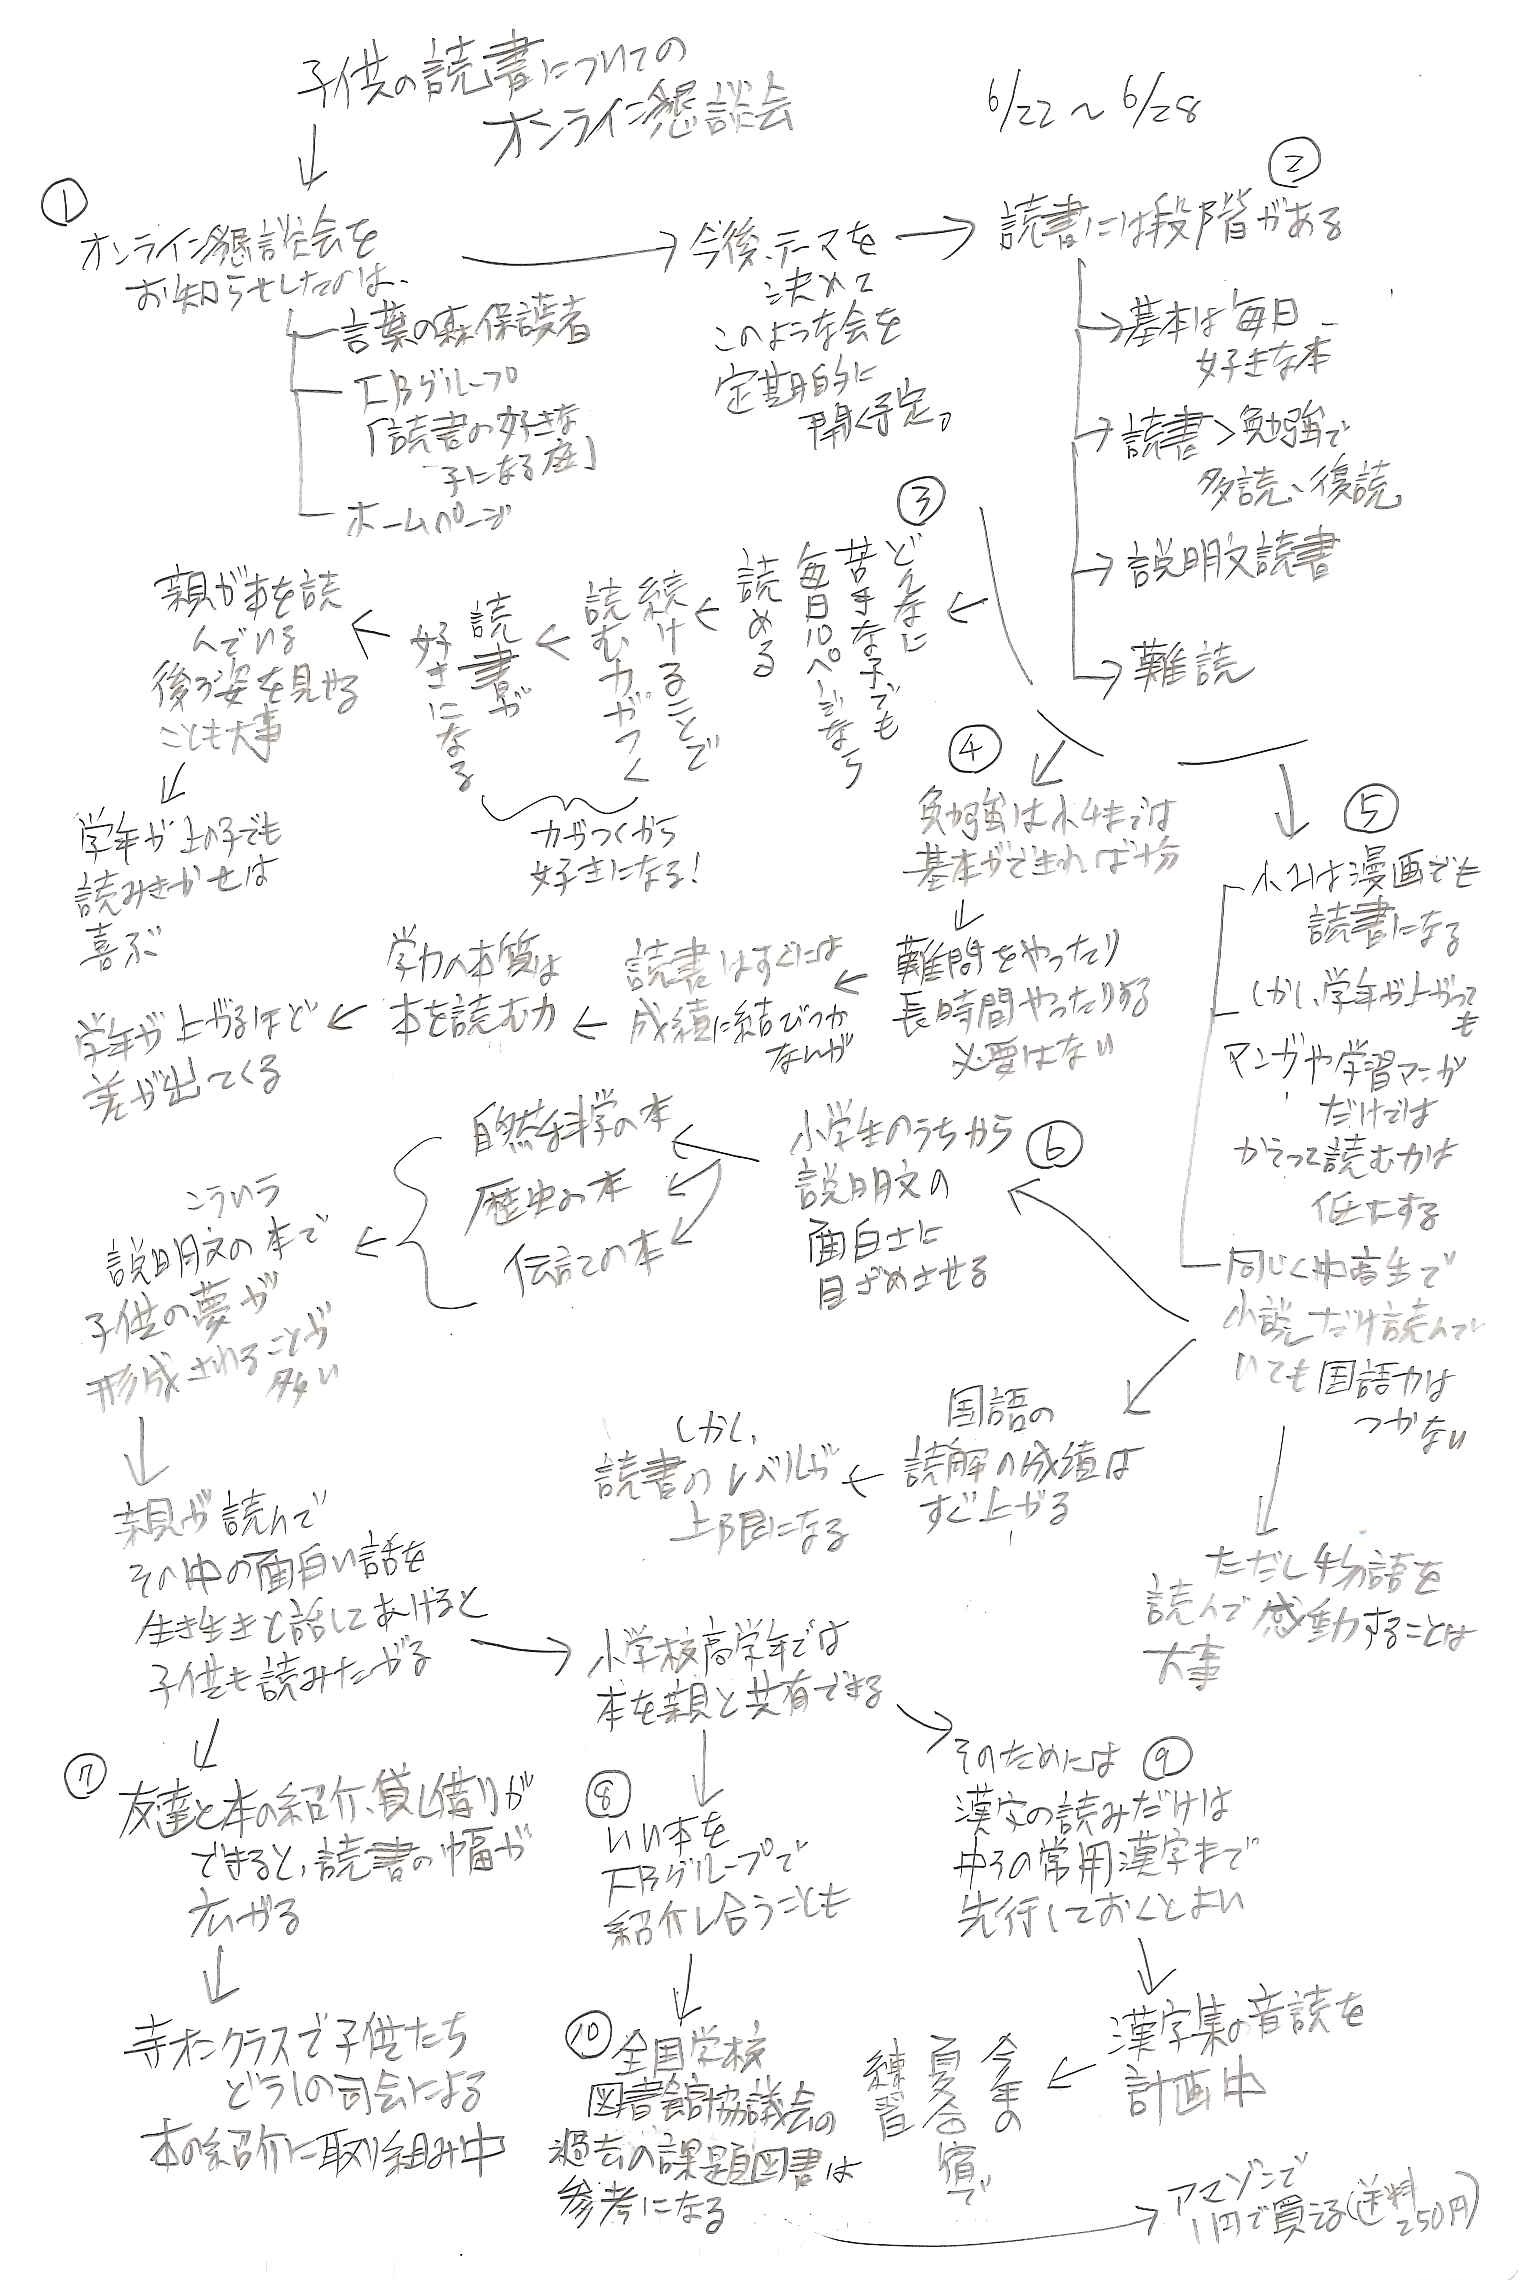 子供の読書についての
オンライン懇談会
6/22〜6/28
①
オンライン懇談会を
お知らせしたのは、
言葉の森保護者
FBグループ
「読書の好きな
子になる庭」
ホームページ
今後、テーマを
決めて
このような会を
定期的に
開く予定。
②
読書には段階がある
基本は毎日
好きな本
読書＞勉強で
多読、復読
説明文読書
難読
③
どんなに
苦手な子でも
毎日10ページなら
読める
続けることで
読む力がつく
読書が
好きになる
力がつくから
好きになる!
親が本を読
んでいる
後ろ姿を見せる
ことも大事
学年が上の子でも
読みきかせは
喜ぶ
④
勉強は小4までは
基本ができれば十分
難問をやったり
長時間やったりする
必要はない
読書はすぐには
成績に結びつか
ないが
学力の本質は
本を読む力
学年が上がるほど
差が出てくる
⑤
小2は漫画でも
読書になる
しかし、学年が上がって
も
マンガや学習マンガ
だけでは
かえって読む力は
低下する
同じく中高生で
小説だけ読んで
いても国語力は
つかない
ただし物語を
読んで感動することは
大事
国語の
読解の成績は
すぐ上がる
しかし、
読書のレベルが
上限になる
⑥
小学生のうちから
説明文の
面白さに
目ざめさせる
自然科学の本
歴史の本
伝記の本
こういう
説明文の本で
子供の夢が
形成されることが
多い
親が読んで
その中の面白い話を
生き生きと話してあげると
子供も読みたがる
小学校高学年では
本を親と共有できる
⑦
友達と本の紹介、貸し借りが
できると、読書の幅が
広がる
寺オンクラスで子供たち
どうしの司会による
本の紹介に取り組み中
⑧
いい本を
FBグループで
紹介し合うことも
⑨
そのためには
漢字の読みだけは
中3の常用漢字まで
先行しておくとよい
漢字集の音読を
計画中
今年の
夏合宿で
練習
⑩
全国学校
図書館協議会の
過去の課題図書は
参考になる
アマゾンで
1円で買える(送料
250円)